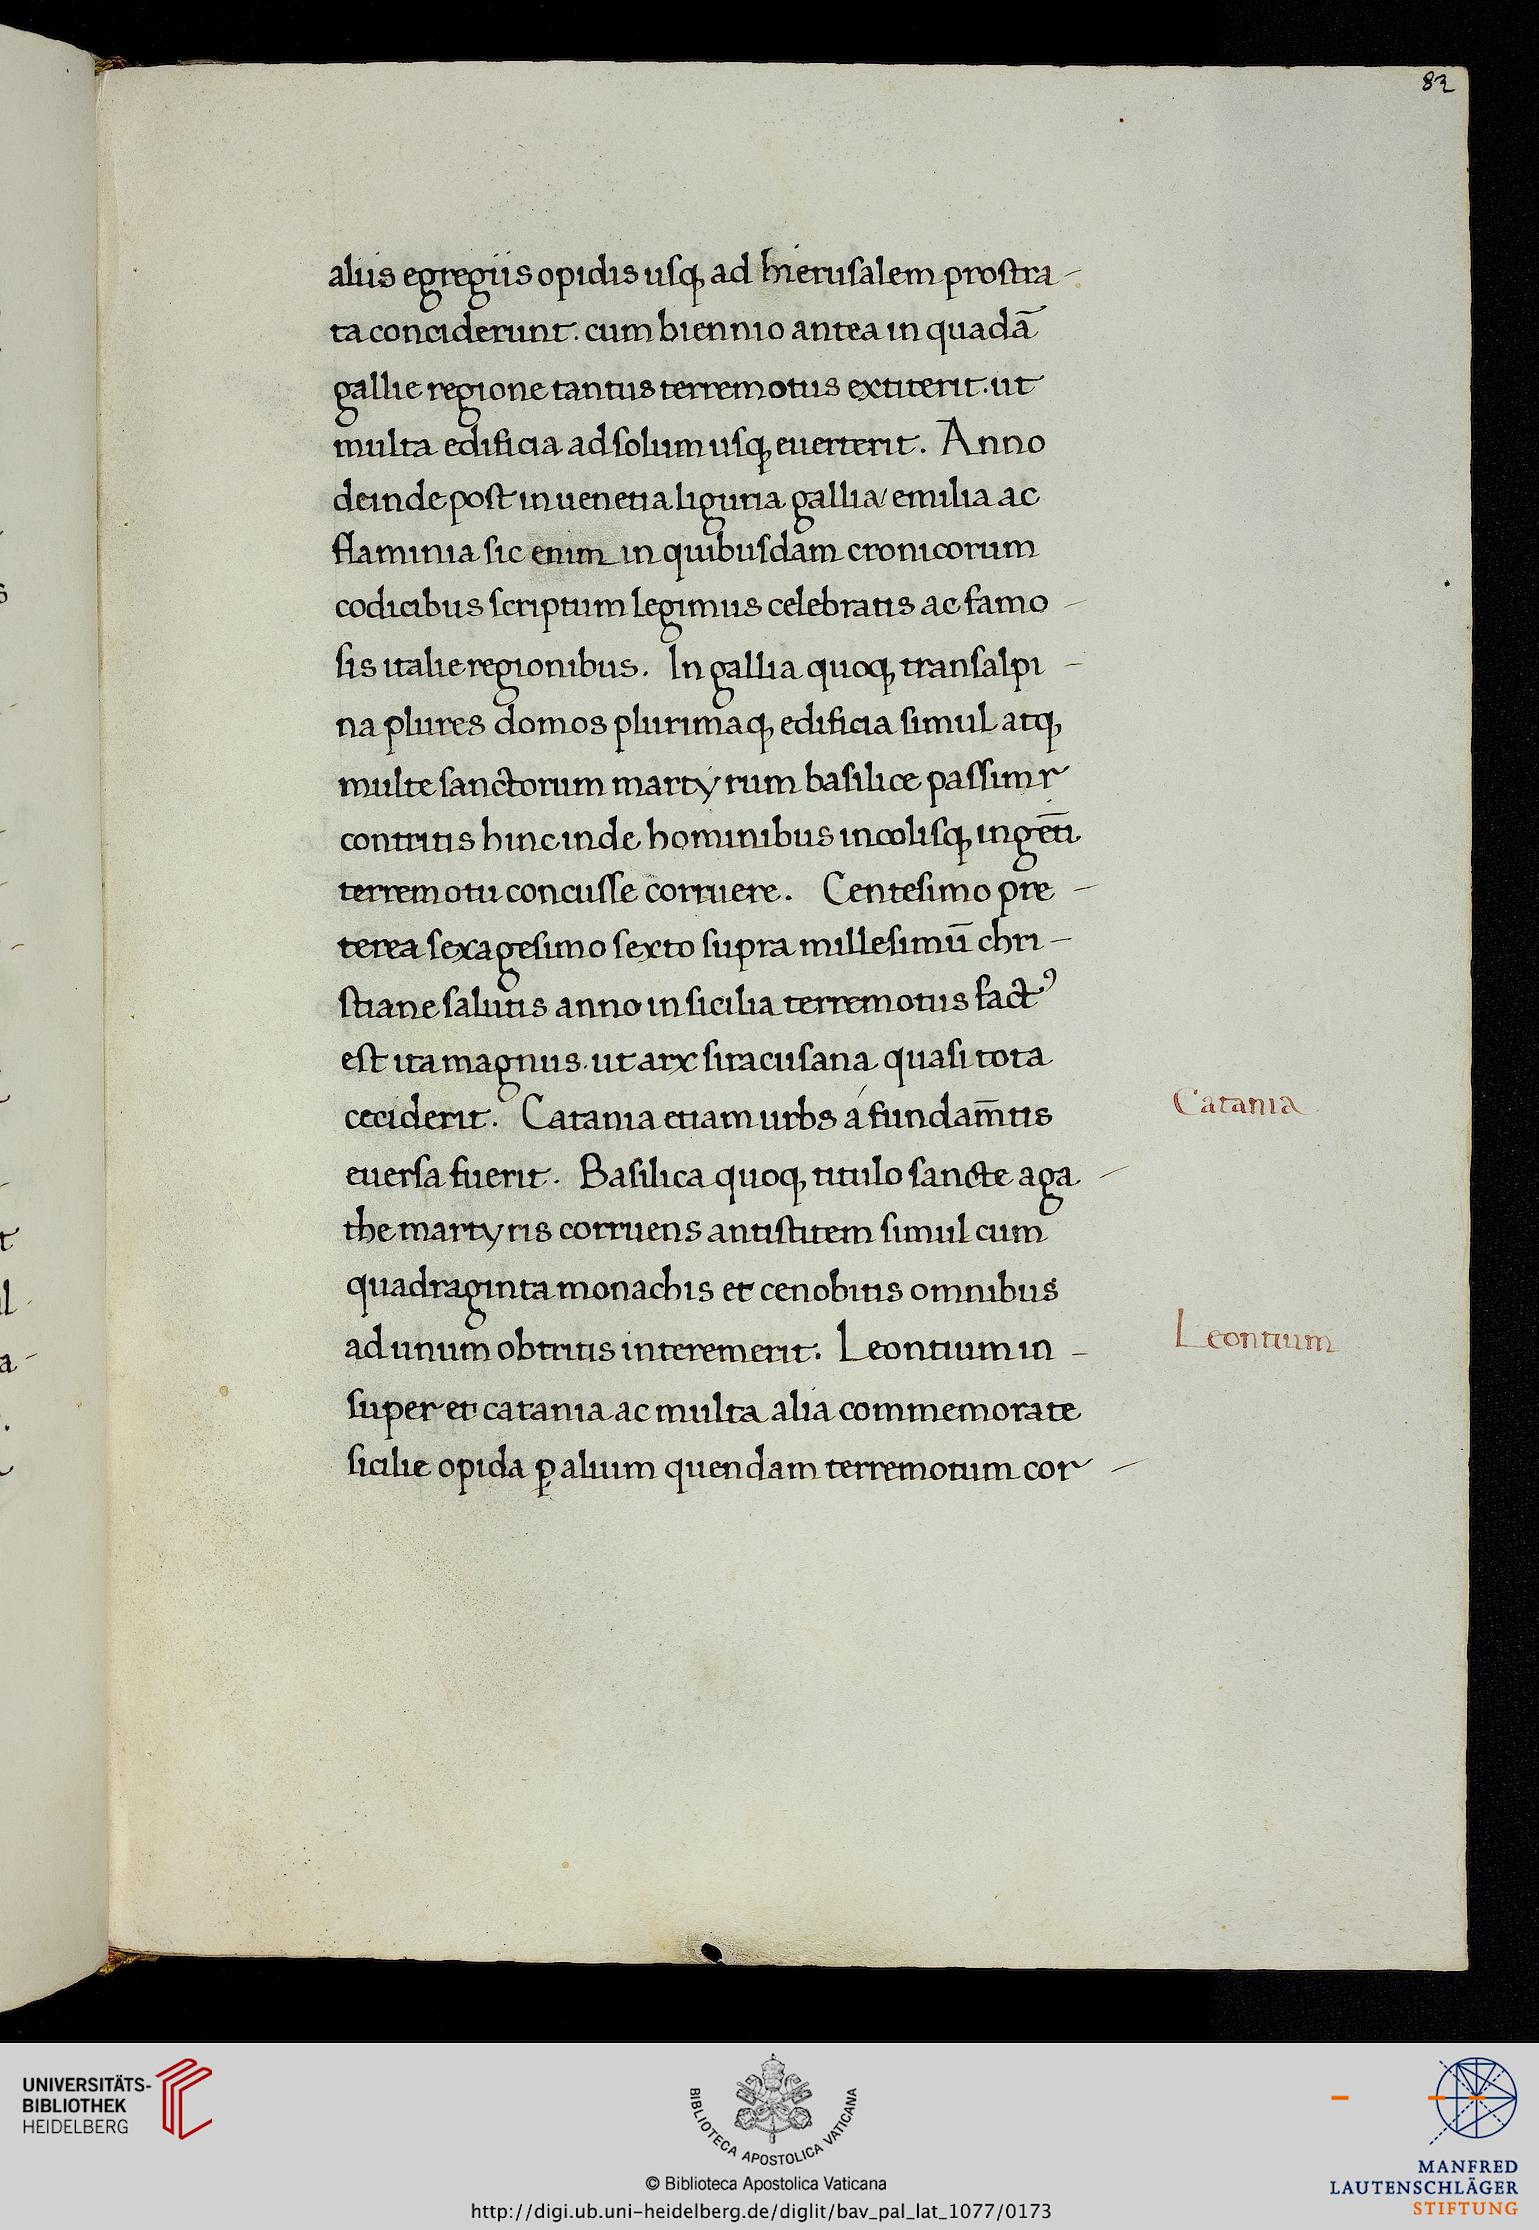 82
aliis egregiis opidis usq; ad hierusalem prostra-
ta conciderunt. cum biennio antea in quadā
gallie regione tantus terremotus extiterit. ut
multa edificia ad solum usq; euerterit. Anno
deinde post in uenetia liguria gallia/ emilia ac
flaminia sic enim in quibusdam cronicorum
codicibus scriptum legimus celebratis ac famo-
sis italie regionibus. In gallia quoq; transalpi-
na plures domos plurimaq; edificia simul atq;
multe sanctorum martyrum basilice passim
contritis hinc inde hominibus incolisq; ingēti
terremotu concusse corruere. Centesimo pre-
terea sexagesimo sexto supra millesimū chri-
stiane salutis anno in sicilia terremotus factꝰ
est ita magnus. ut arx siracusana quasi tota
ceciderit. Catania etiam urbs á fundam̄tis
Catania
euersa fuerit. Basilica quoq; titulo sancte aga-
the martyris corruens antistitem simul cum
quadraginta monachis et cenobitis omnibus
ad unum obtritis interemerit. Leontium in-
Leontium
super et catania ac multa alia commemorate
sicilie opida ꝑ alium quendam terremotum cor-
UNIVERSITÄTS-
BIBLIOTHEK
HEIDELBERG
BIBLIOTECA APOSTOLICA VATICANA
© Biblioteca Apostolica Vaticana
http://digi.ub.uni-heidelberg.de/diglit/bav_pal_lat_1077/0173
MANFRED
LAUTENSCHLÄGER
STIFTUNG